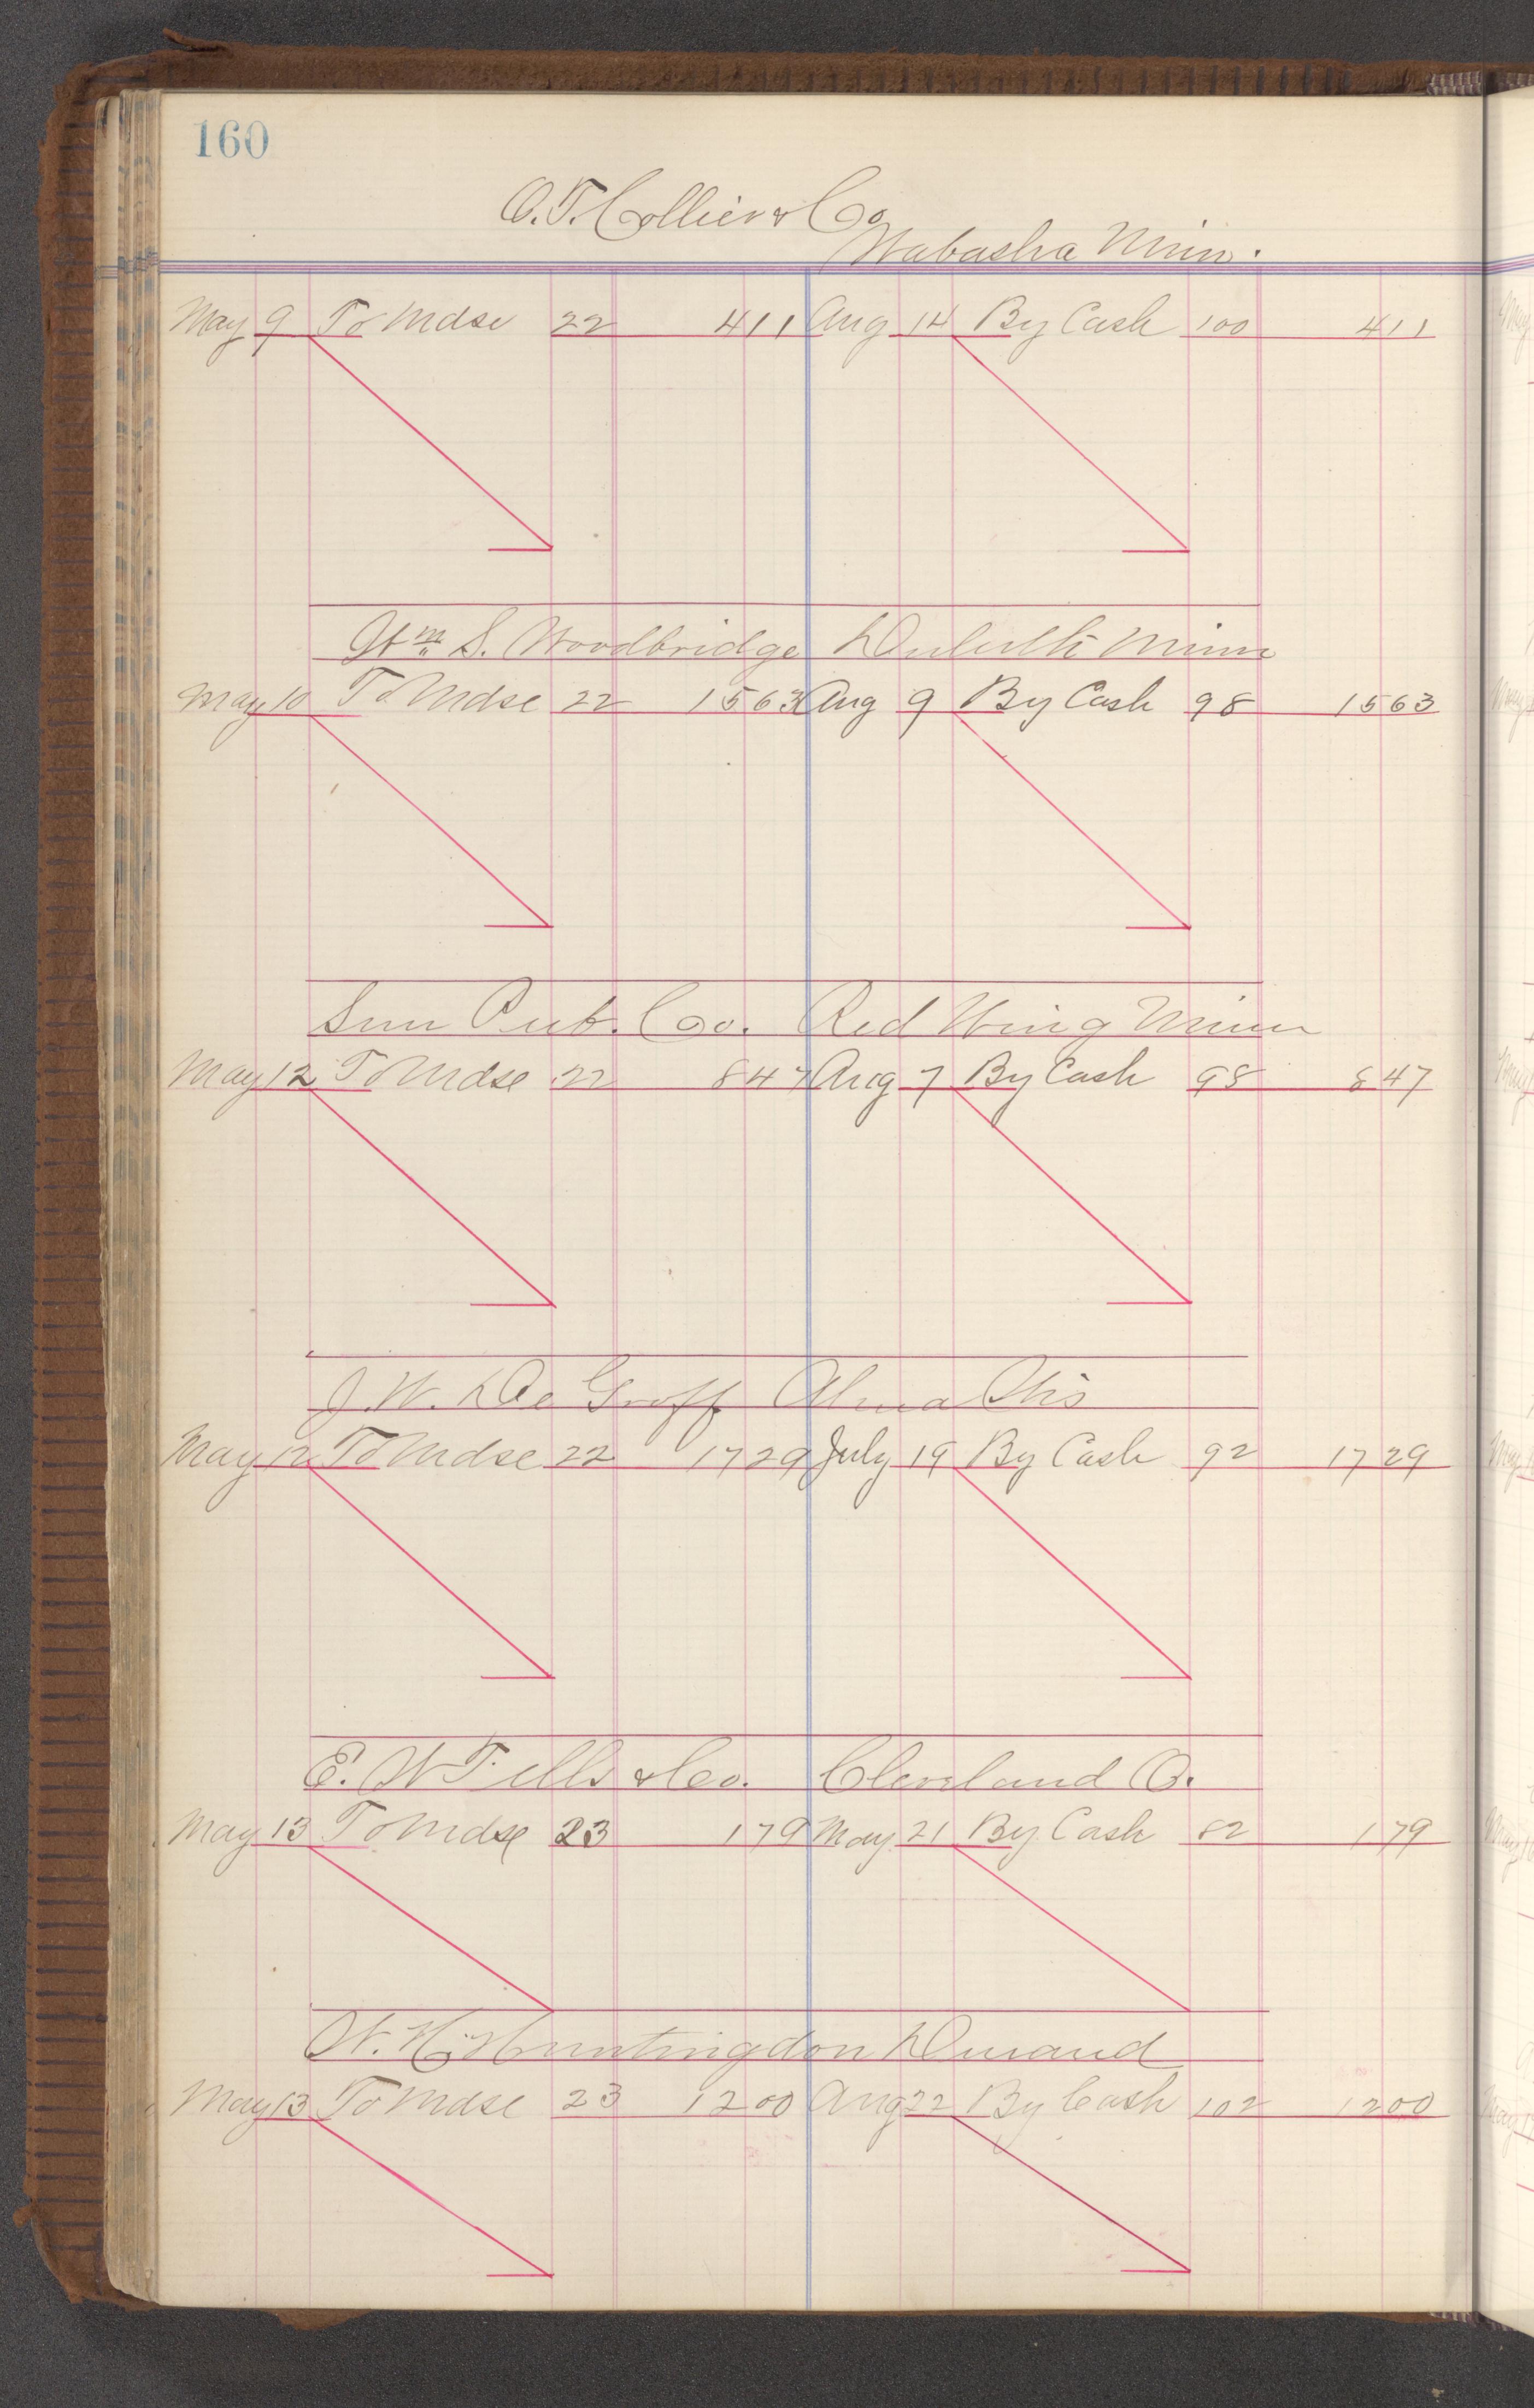 160
O. T. Collier & Co
Wabasha Minn.
May 9 To Mdse 22 4 11 Aug 14 By Cash 100 4 11
Wm S. Woodbridge Duluth Minn
May 10 To Mdse 22 15 63 Aug 9 By Cash 98 15 63
Sun Pub. Co. Red Wing Minn
May 12 To Mdse 22 8 47 Aug 7 By Cash 98 8 47
J. W. De Groff Alma Wis
May 12 To Mdse 22 17 29 July 19 By Cash 92 17 29
E. W. Fells & Co. Cleveland O.
May 13 To Mdse 23 1 79 May 21 By Cash 82 1 79
W. H. Huntingdon Durand
May 13 To Mdse 23 12 00 Aug 22 By Cash 102 12 00